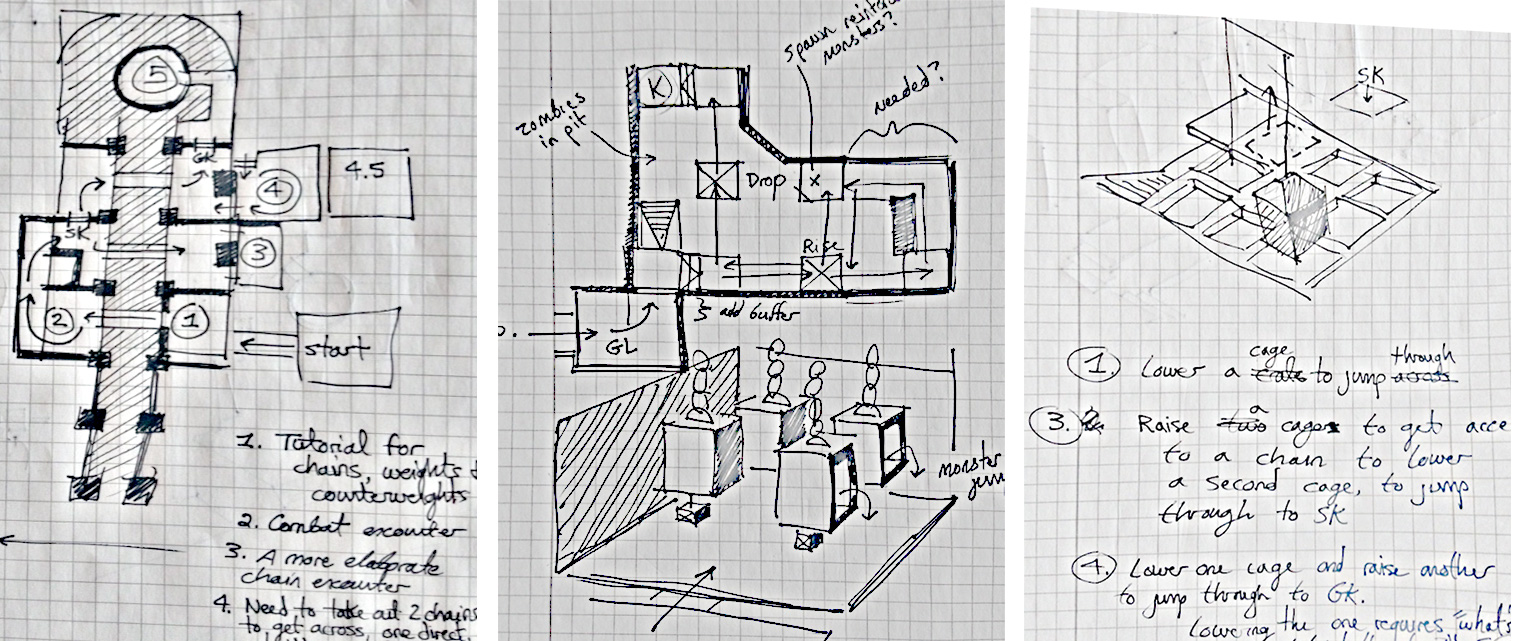 5
GK
4
4.5
SK
3
2
1
start
1. Tutorial for
chains, weights &
counterweights
2. Combat encounter
3. A more elaborate
chain encounter
4. Need to take out 2 chains
to get across, one direct,
spawn
monsters?
K
needed?
zombies
in pit
Drop
x
Rise
add buffer
GL
monster
jump
SK
1. Lower a cage to jump through
3. Raise a cage to get acce
to a chain to lower
a second cage, to jump
through to SK
4. Lower one cage and raise another
to jump through to GK.
Lowering the one requires "what's